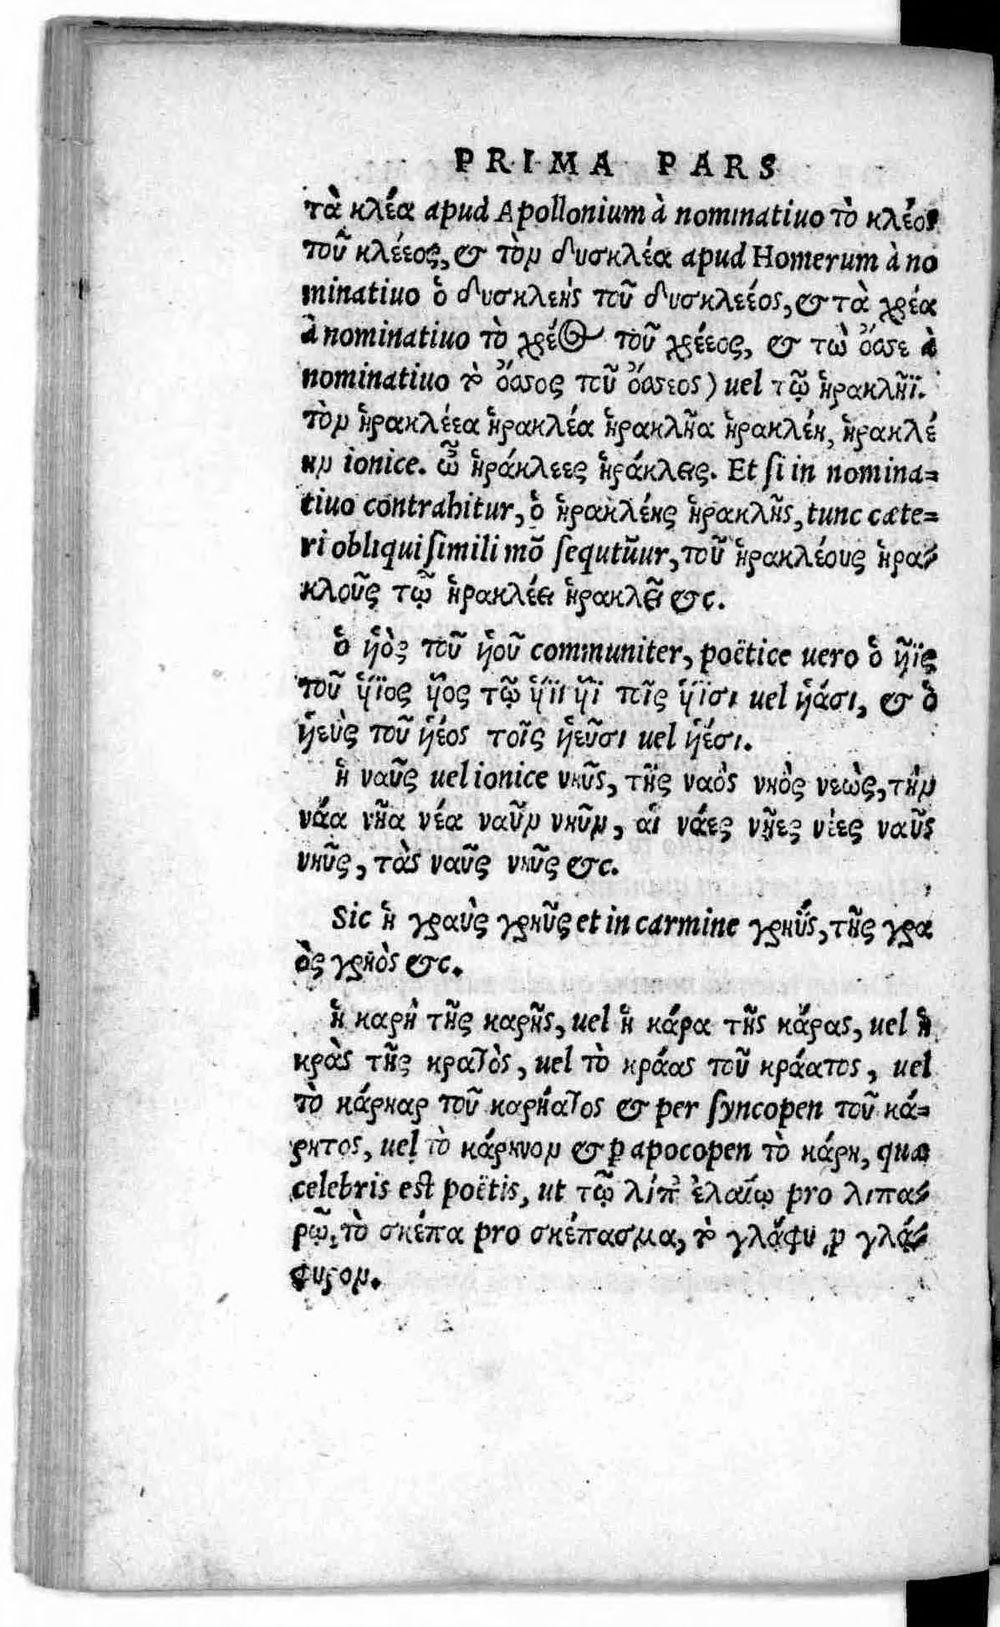 PRIMA PARS
τὰ κλέα apud Apollonium à nominatiuo τὸ κλέος
τοῦ κλέεος, & τὸν δυσκλέα apud Homerum à no
minatiuo ὁ δυσκλεὴς τοῦ δυσκλεέος, & τὰ χρέα
à nominatiuo τὸ χρέος τοῦ χρέεος, & τὼ ὄσσε à
nominatiuo τὸ ὄσσος τοῦ ὄσσεος) uel τῷ ἡρακλῆϊ.
τὸν ἡρακλέεα ἡρακλέα ἡρακλῆα ἡρακλέη, ἡρακλέ
ην ionice. ὦ ἡράκλεες ἡράκλεις. Et ſi in nomina=
tiuo contrahitur, ὁ ἡρακλέης ἡρακλῆς, tunc cæte=
ri obliqui ſimili mō ſequūtur, τοῦ ἡρακλέους ἡρα=
κλοῦς τῷ ἡρακλέει ἡρακλεῖ &c.
ὁ ὑὸς τοῦ ὑοῦ communiter, poëtice uero ὁ ὗϊς
τοῦ ὕϊος ὗος τῷ ὕϊι ὗϊ τοῖς ὕϊσι uel ὑάσι, & ὁ
ὑεὺς τοῦ ὑέος τοῖς ὑεῦσι uel ὑέσι.
ἡ ναῦς uel ionice νηῦς, τῆς ναὸς νηὸς νεὼς, τὴν
νάα νῆα νέα ναῦν νηῦν, αἱ νάες νῆες νέες ναῦς
νηῦς, τὰς ναῦς νηῦς &c.
Sic ἡ γραὺς γρηῦς et in carmine γρηῢς, τῆς γρα
ὸς γρηὸς &c.
ἡ καρὴ τῆς καρῆς, uel ἡ κάρα τῆς κάρας, uel ἡ
κρὰς τῆς κρατὸς, uel τὸ κράας τοῦ κράατος, uel
τὸ κάρηαρ τοῦ καρήατος & per ſyncopen τοῦ κά=
ρητος, uel τὸ κάρηνον & ꝑ apocopen τὸ κάρη, quæ
celebris eſt poëtis, ut τῷ λίπ' ἐλαίῳ pro λιπα=
ρῷ, τὸ σκέπα pro σκέπασμα, τὸ γλάφυ ꝓ γλά=
φυρον.